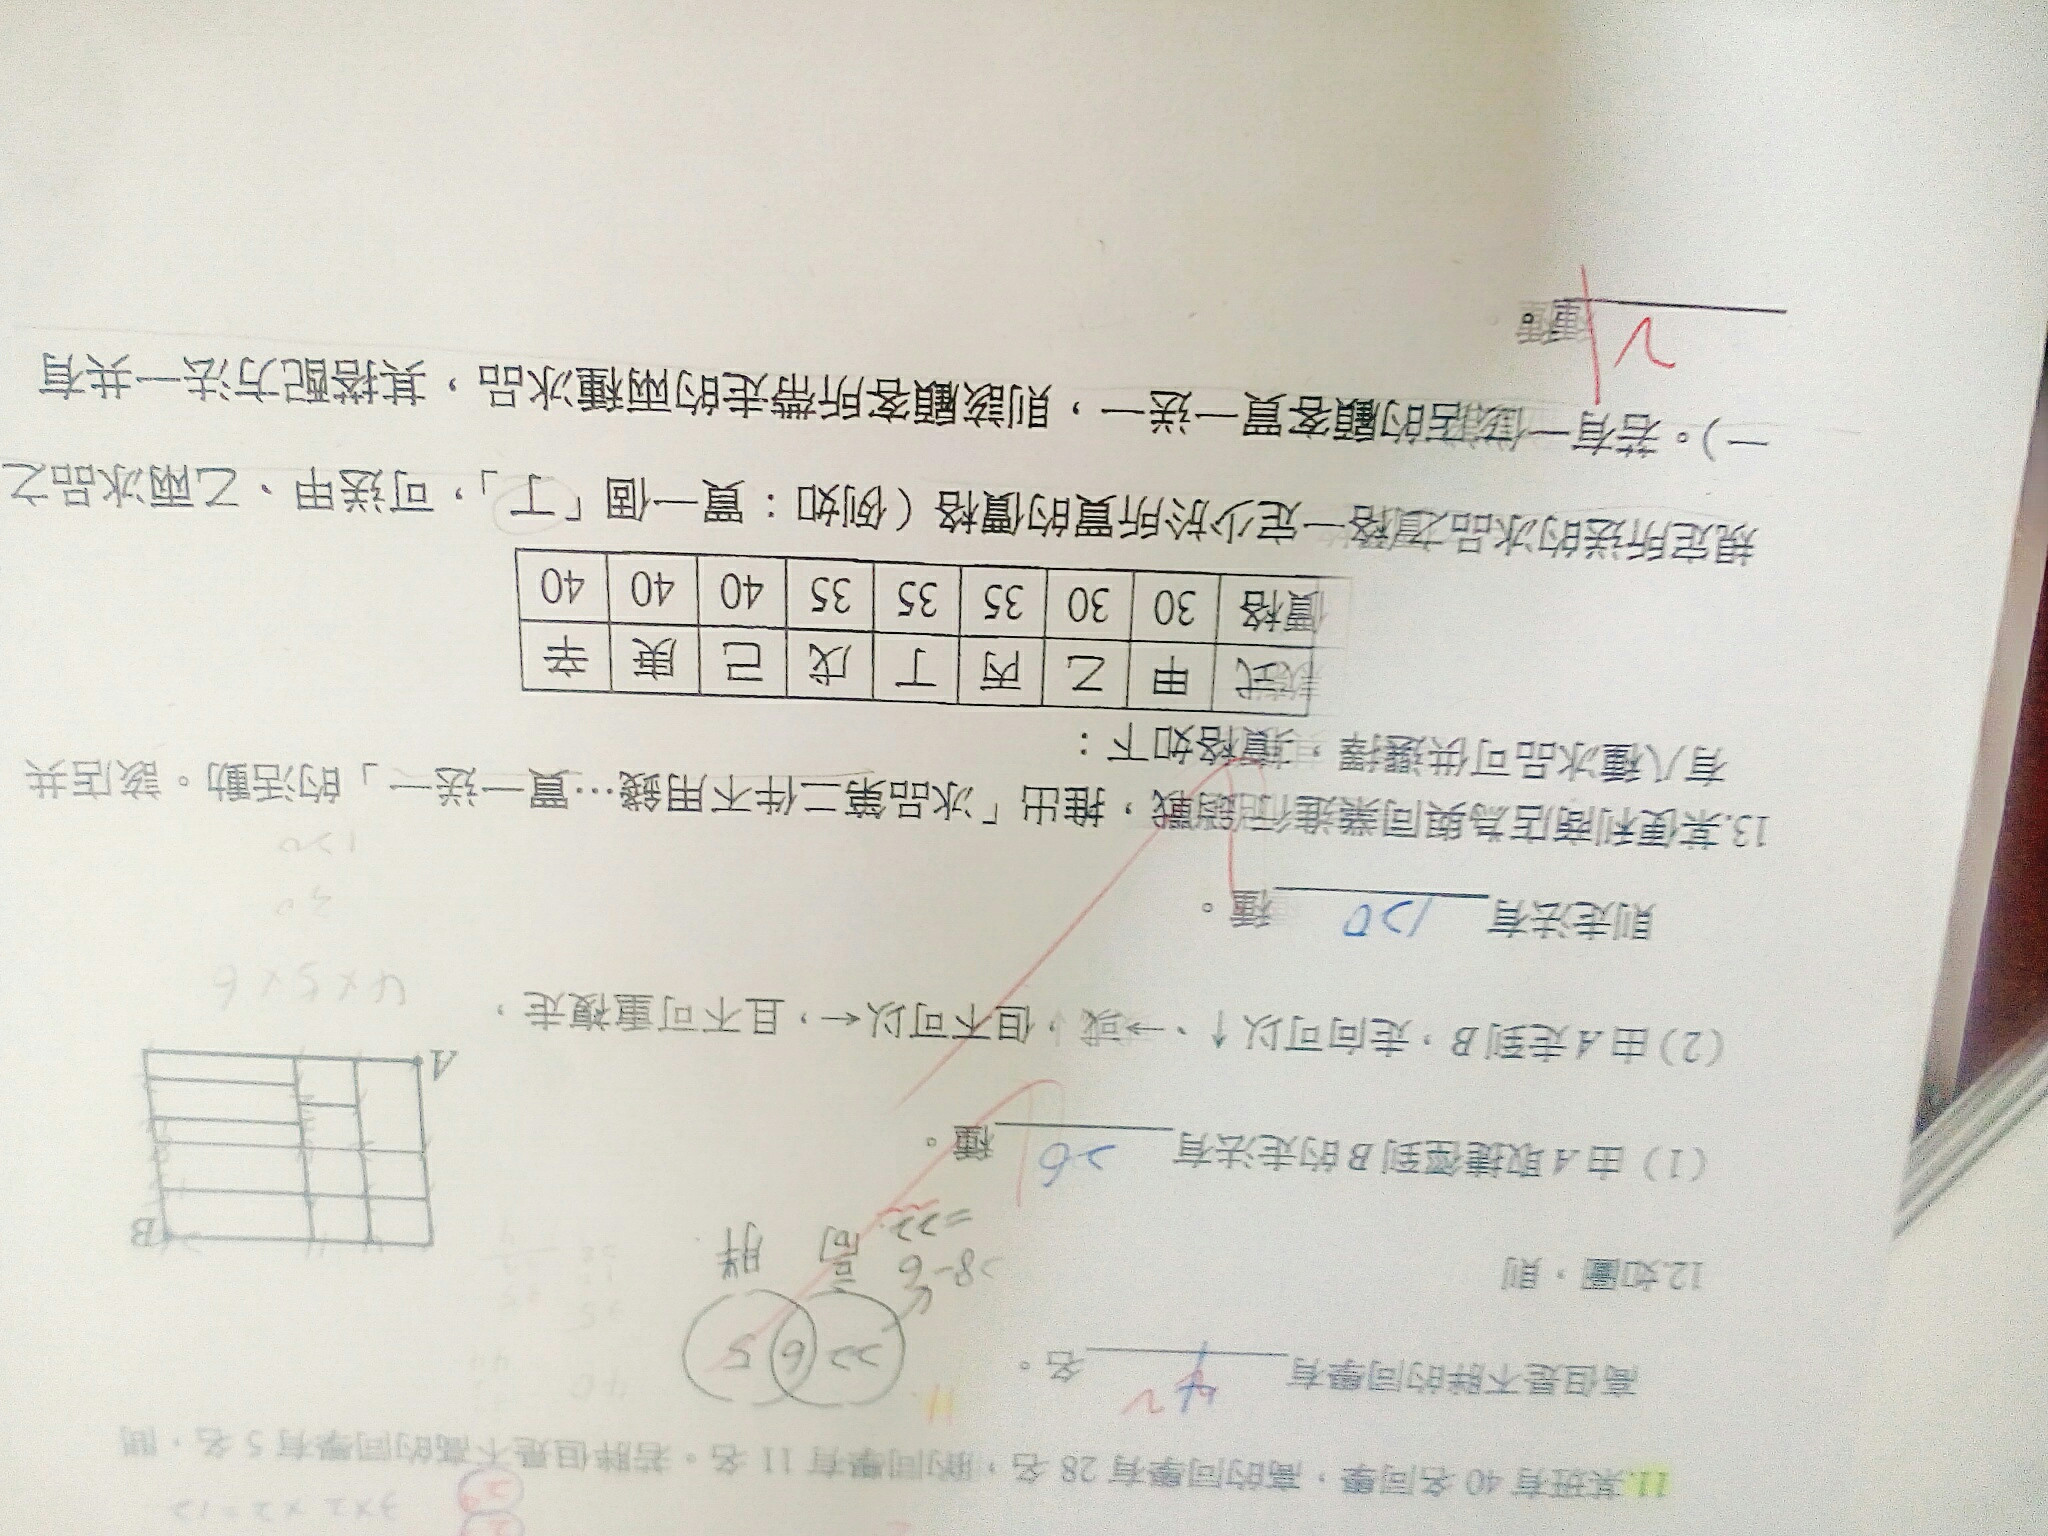 3×2×2=12
11.某班有 40 名同學,高的同學有 28 名,胖的同學有 11 名。若胖但是不高的同學有 5 名,問
高但是不胖的同學有 名。
22 6 5
高 胖
28-6
=22
12.如圖,則
B
A
(1) 由 A 取捷徑到 B 的走法有 26 種。
(2) 由 A 走到 B,走向可以↑、→或↓,但不可以←,且不可重複走,
4×5×6
則走法有 120 種。
120
13.某便利商店為與同業進行促銷戰,推出「冰品第二件不用錢…買一送一」的活動。該店共
有八種冰品可供選擇,其價格如下:
款式 甲 乙 丙 丁 戊 己 庚 辛
價格 30 30 35 35 35 40 40 40
規定所送的冰品之價格一定少於所買的價格(例如:買一個「丁」,可送甲、乙兩冰品之
一)。若有一個到店的顧客買一送一,則該顧客所帶走的兩種冰品,其搭配方法一共有
21 種。